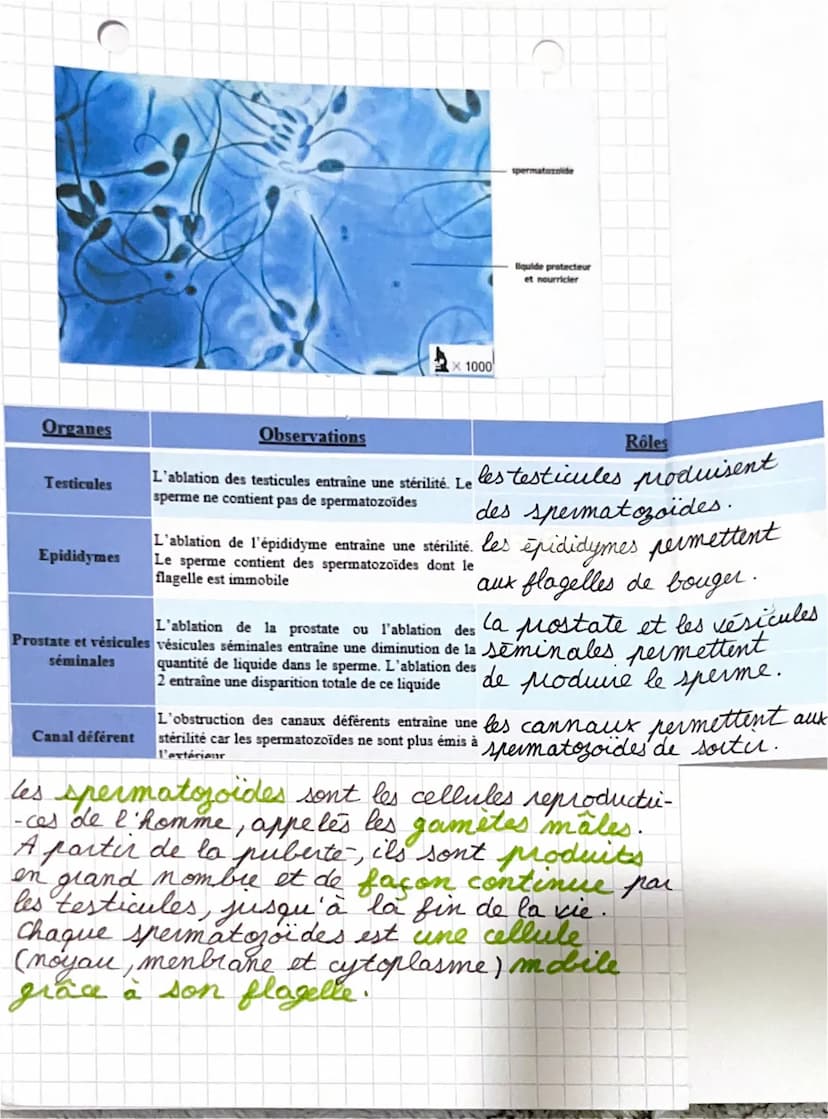 spermatozoïde
liquide protecteur
et nourricier
× 1000
Organes
Observations
Rôles
Testicules
L'ablation des testicules entraîne une stérilité. Le
sperme ne contient pas de spermatozoïdes
les testicules produisent
des spermatozoïdes.
Epididymes
L'ablation de l'épididyme entraîne une stérilité.
Le sperme contient des spermatozoïdes dont le
flagelle est immobile
les épididymes permettent
aux flagelles de bouger.
Prostate et vésicules
séminales
L'ablation de la prostate ou l'ablation des
vésicules séminales entraîne une diminution de la
quantité de liquide dans le sperme. L'ablation des
2 entraîne une disparition totale de ce liquide
La prostate et les vésicules
séminales permettent
de produire le sperme.
Canal déférent
L'obstruction des canaux déférents entraîne une
stérilité car les spermatozoïdes ne sont plus émis à
l'extérieur
les cannaux permettent aux
spermatozoïdes de sortir.
Les spermatozoïdes sont les cellules reproductri-
-ces de l'homme, appelés les gamètes mâles.
A partir de la puberté, ils sont produits
en grand nombre et de façon continue par
les testicules, jusqu'à la fin de la vie.
Chaque spermatozoïdes est une cellule
(noyau, menbrane et cytoplasme) mobile
grâce à son flagelle.